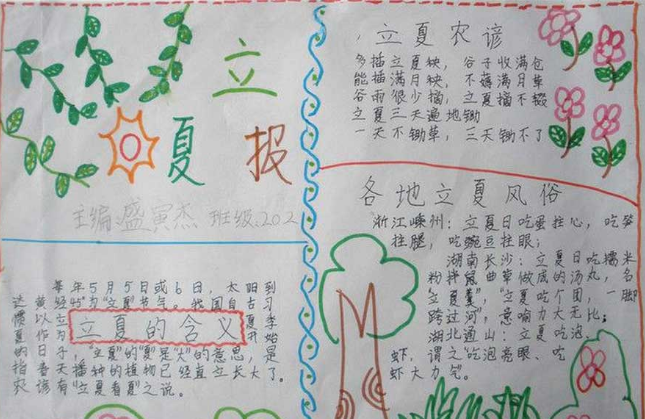 立
夏 报
主编:盛寅杰 班级:202
立夏农谚
多插立夏秧，谷子收满仓
能插满月秧，不薅满月草
谷雨很少摘，立夏摘不辍
立夏三天遍地锄
一天不锄草，三天锄不了
各地立夏风俗
浙江嵊州：立夏日吃蛋拄心，吃笋
拄腿，吃豌豆拄眼；
湖南长沙：立夏日吃糯米
粉拌鼠曲草做成的汤丸，名
立夏羹"，"立夏吃个团，一脚
跨过河"，意喻力大无比；
湖北通山：立夏吃泡、
虾，谓之"吃泡亮眼、吃
虾大力气。
每年5月5日或6日，太阳到
达黄经45°为"立夏"节气。我国自古习
惯以立 夏
立夏的含义
作为 季
夏 开始
的日子，"立夏"的"夏"是"大"的意思，是
指春天播种的植物已经直立长大了。
农谚有"立夏看夏"之说。